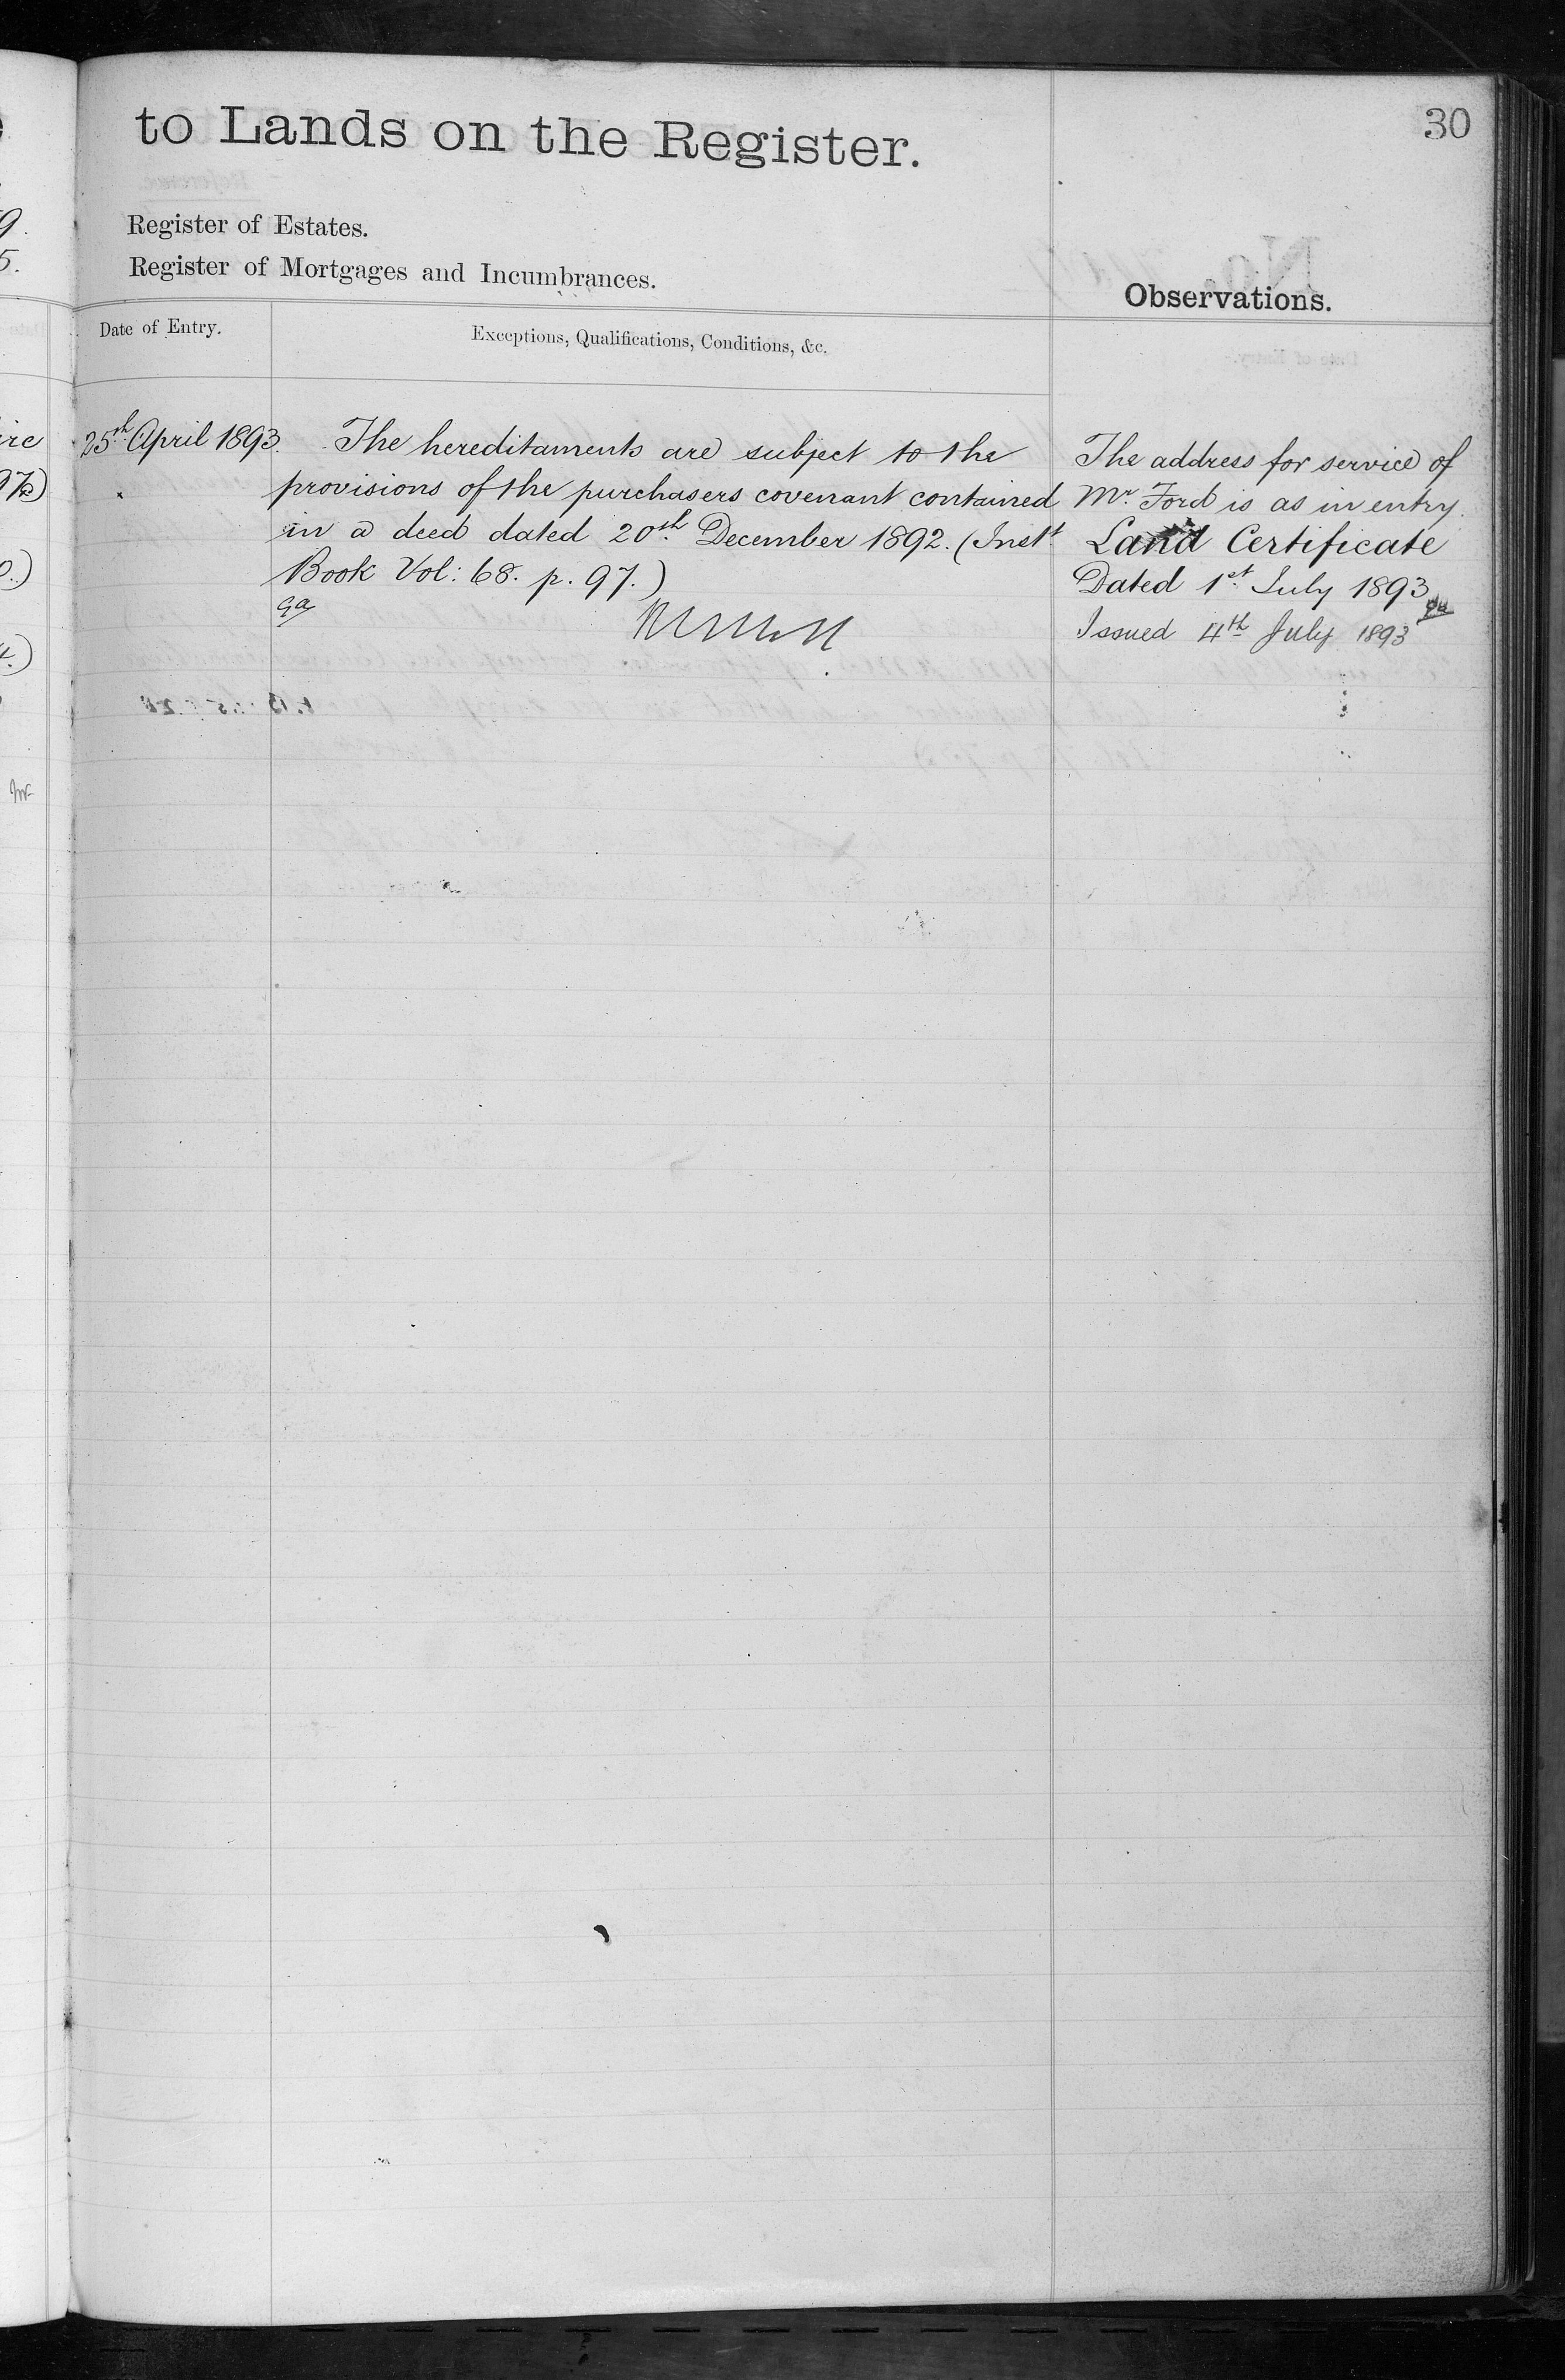 to Lands on the Register.
30
Register of Estates.
Register of Mortgages and Incumbrances.
Observations.
Date of Entry.
Exceptions, Qualifications, Conditions, &c.
25th April 1893.
The hereditaments are subject to the
provisions of the purchasers covenant contained
in a deed dated 20th December 1892. (Instt
Book Vol: 68. p. 97.)
The address for service of
Mr. Ford is as in entry.
Land Certificate
Dated 1st July 1893
Issued 4th July 1893